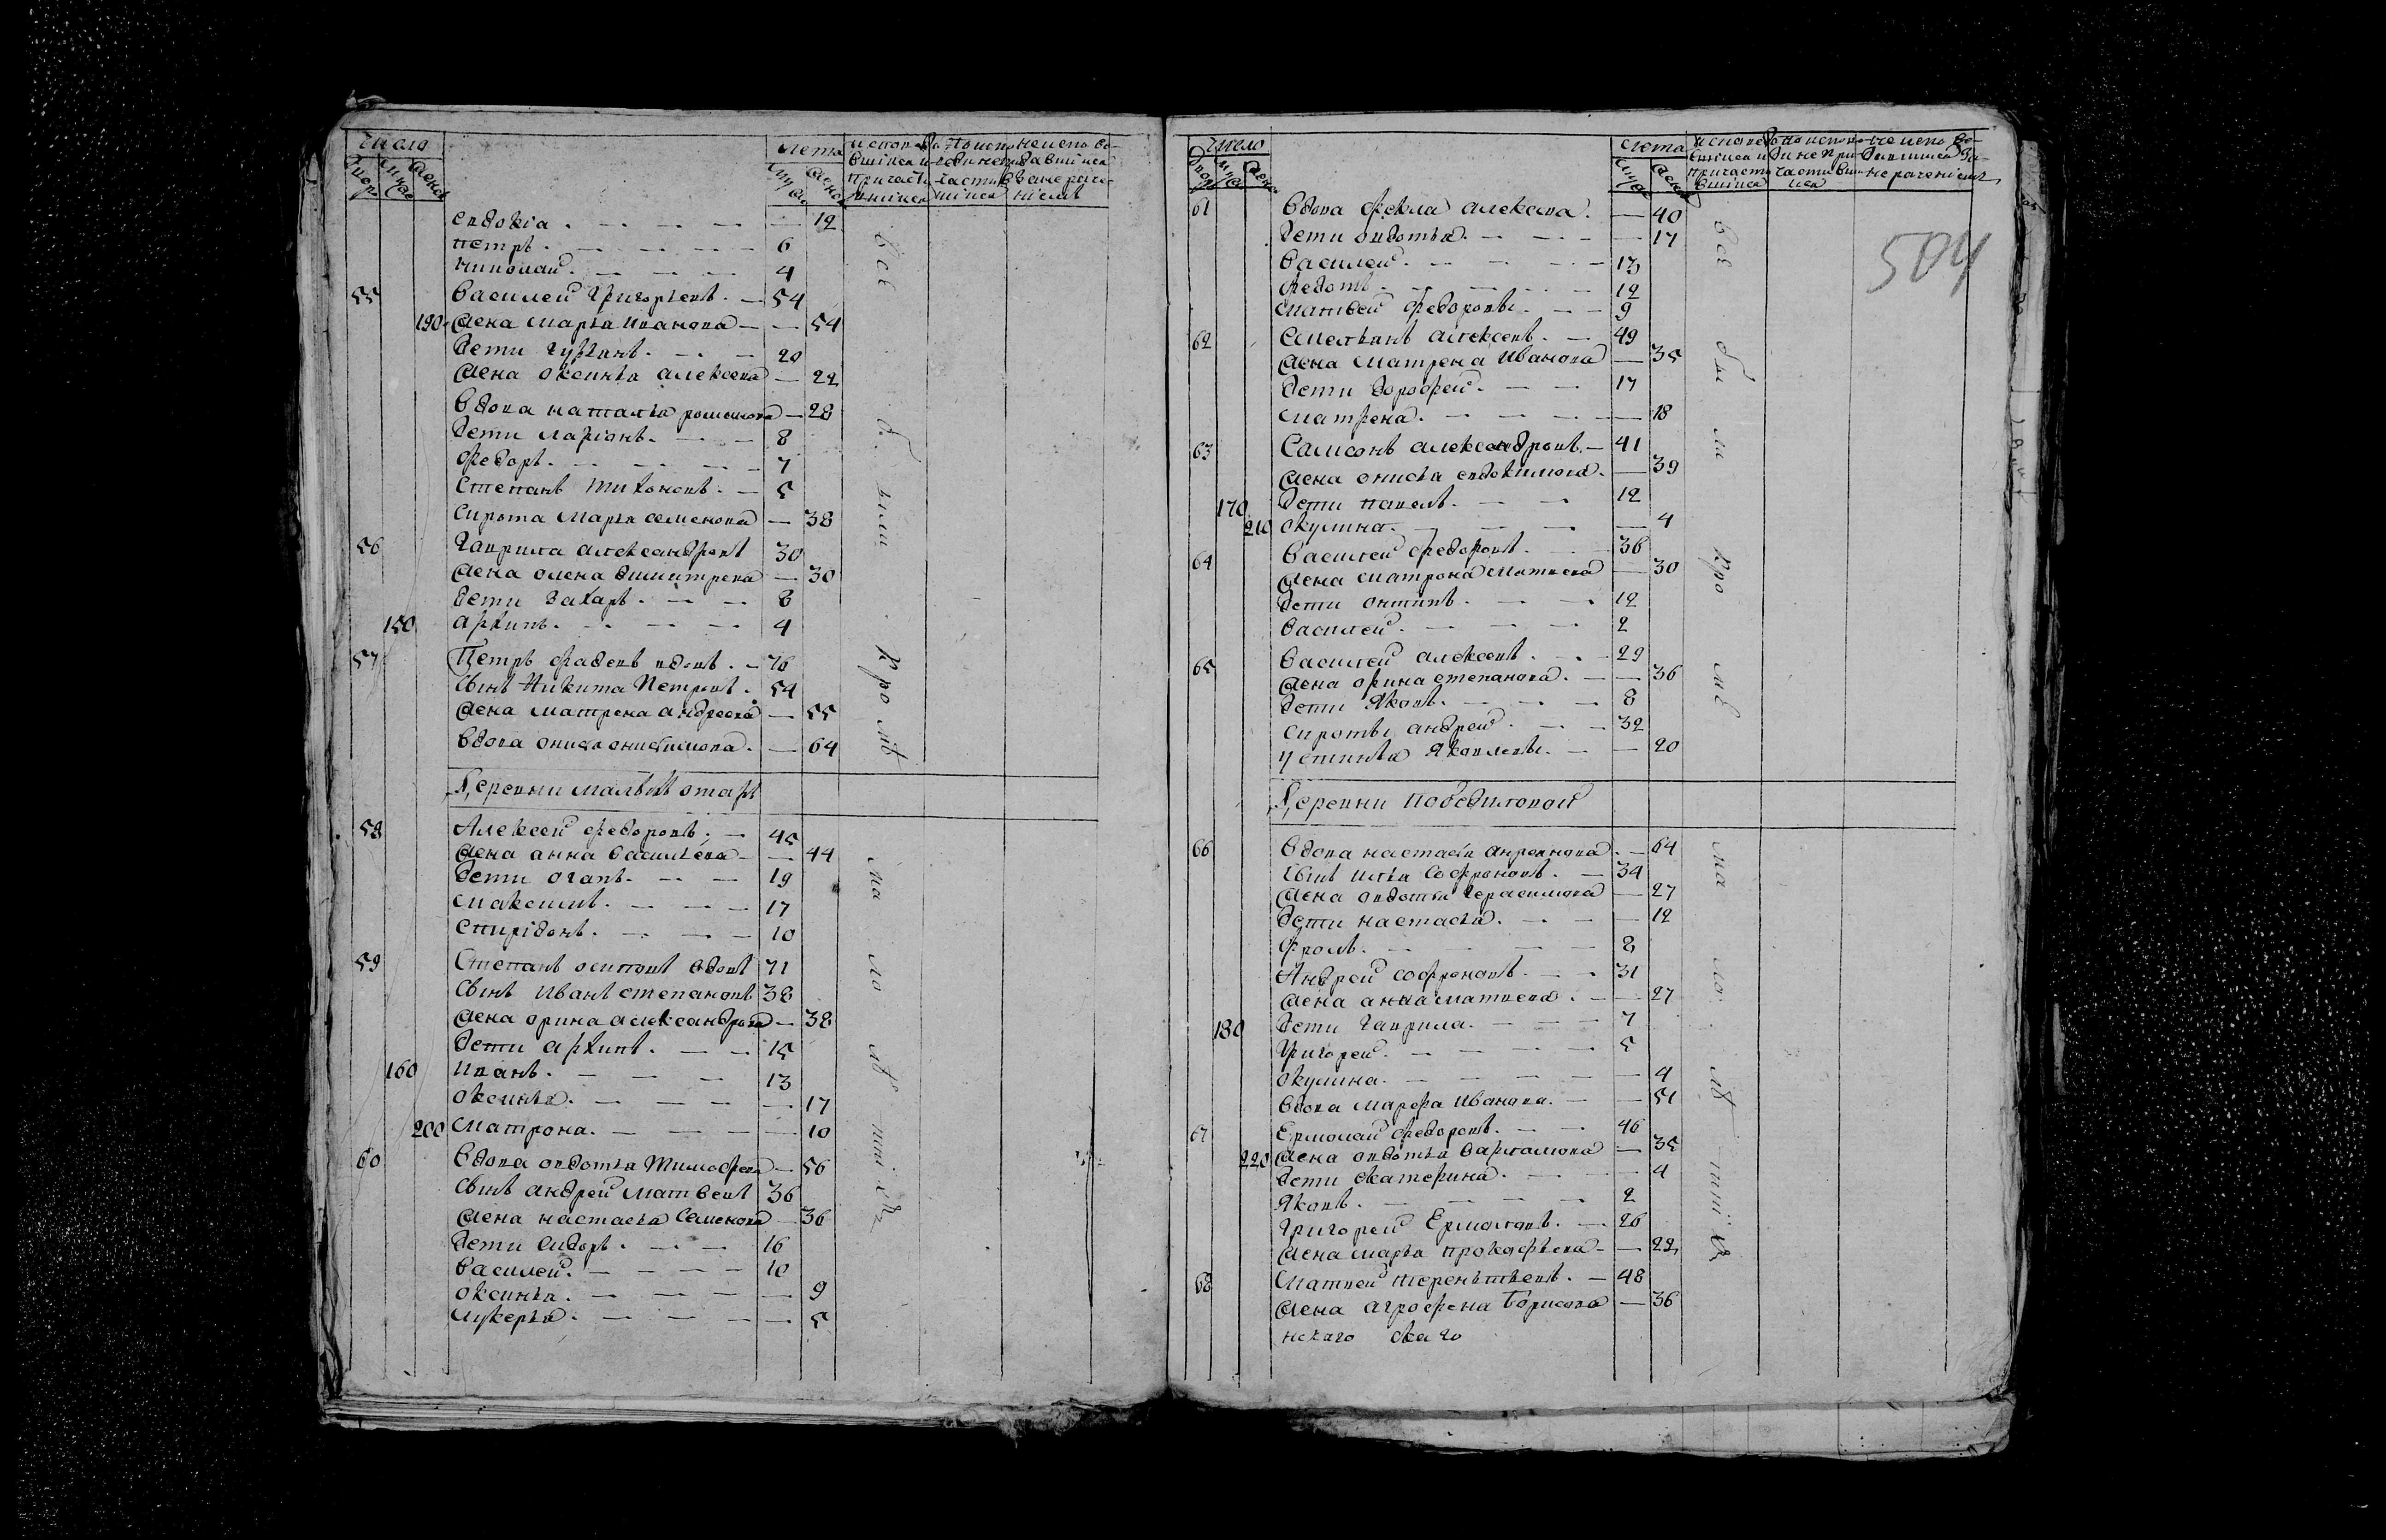 число
лета
евдокіа 12
петръ 6
николай 4
55 Василей Григорьевъ 54
190 жена марья иванова 54
дети гурьянъ 20
жена оксинья алексеева 22
вдова наталья романова 28
дети ларіонъ 8
федоръ 7
степанъ тихоновъ 5
сирота марья семенова 38
56 Гаврила александровъ 30
жена олена димитрева 30
дети захаръ 8
150 архипъ 4
57 Петръ фадеевъ вдовъ 76
сынъ никита петровъ 54
жена матрена андреева 55
вдова онисья онисимова 64
Деревни
58 Алексей федоровъ 45
жена анна васильева 44
дети
максимъ 17
спирідонъ 10
59 Степанъ осиповъ вдовъ 71
сынъ иванъ степановъ 38
жена орина александрова 38
дети архипъ 15
160 иванъ 13
оксинья 17
200 матрона 10
60 Вдова овдотья тимофеева 56
сынъ андрей матвеевъ 36
жена настасья семенова 36
дети сидоръ 16
василей 10
оксинья 9
лукерья 5
все были кромѣ
малолѣтніхъ
число
лета
504
61 Вдова фекла алексеева 40
дети овдотья 17
василей 13
федотъ 12
матвей федоровы 9
62 Емельянъ алексеевъ 49
жена матрена иванова 35
дети дорофей 17
матрена 18
63 Самсонъ александровъ 41
жена онисья евдокимова 39
170 дети павелъ 12
210 окулина 4
64 Василей федоровъ 36
жена матрона матвеева 30
дети онтипъ 12
василей 2
65 Василей алексеевъ 29
жена орина степанова 36
дети яковъ 8
сироты андрей 32
устинья яковлевы 20
Деревни победиловой
66 Вдова настасья 64
сынъ илья софроновъ 34
жена овдотья герасимова 27
дети настасья 12
фролъ 8
Андрей софроновъ 31
жена анна матвеева 27
180 дети гаврила 7
григорей 5
окулина 4
вдова марфа иванова 51
67 Ермолай федоровъ 46
220 жена овдотья варламова 35
дети екатерина 4
яковъ 2
григорей Ермолаевъ 26
жена марья прокофьева 22
68 Матвей терентьевъ 48
жена агрофена борисова 36
все были кромѣ
малолѣтніхъ